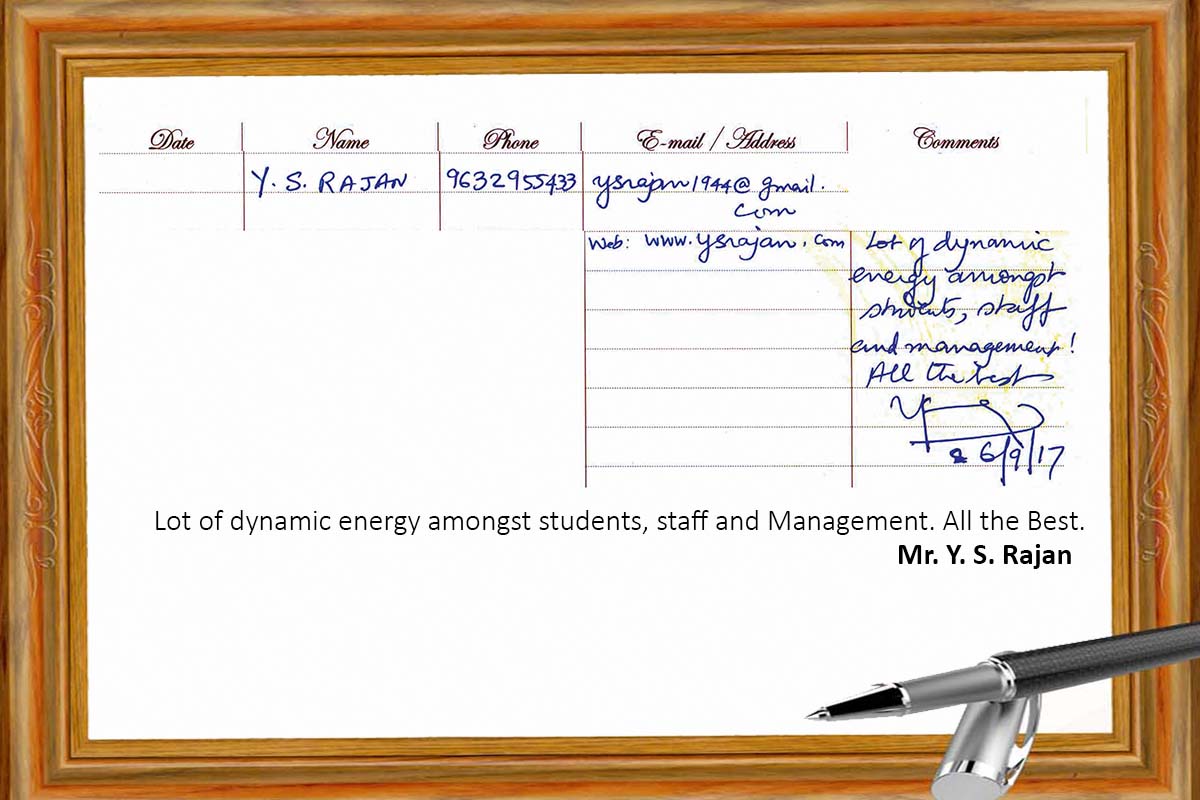 Date Name Phone E-mail / Address Comments
Y. S. RAJAN 9632955433 ysrajan1944@gmail.
com
Web: www.ysrajan.com Lot of dynamic
energy amongst
students, staff
and management!
All the best
6/9/17
Lot of dynamic energy amongst students, staff and Management. All the Best.
Mr. Y. S. Rajan